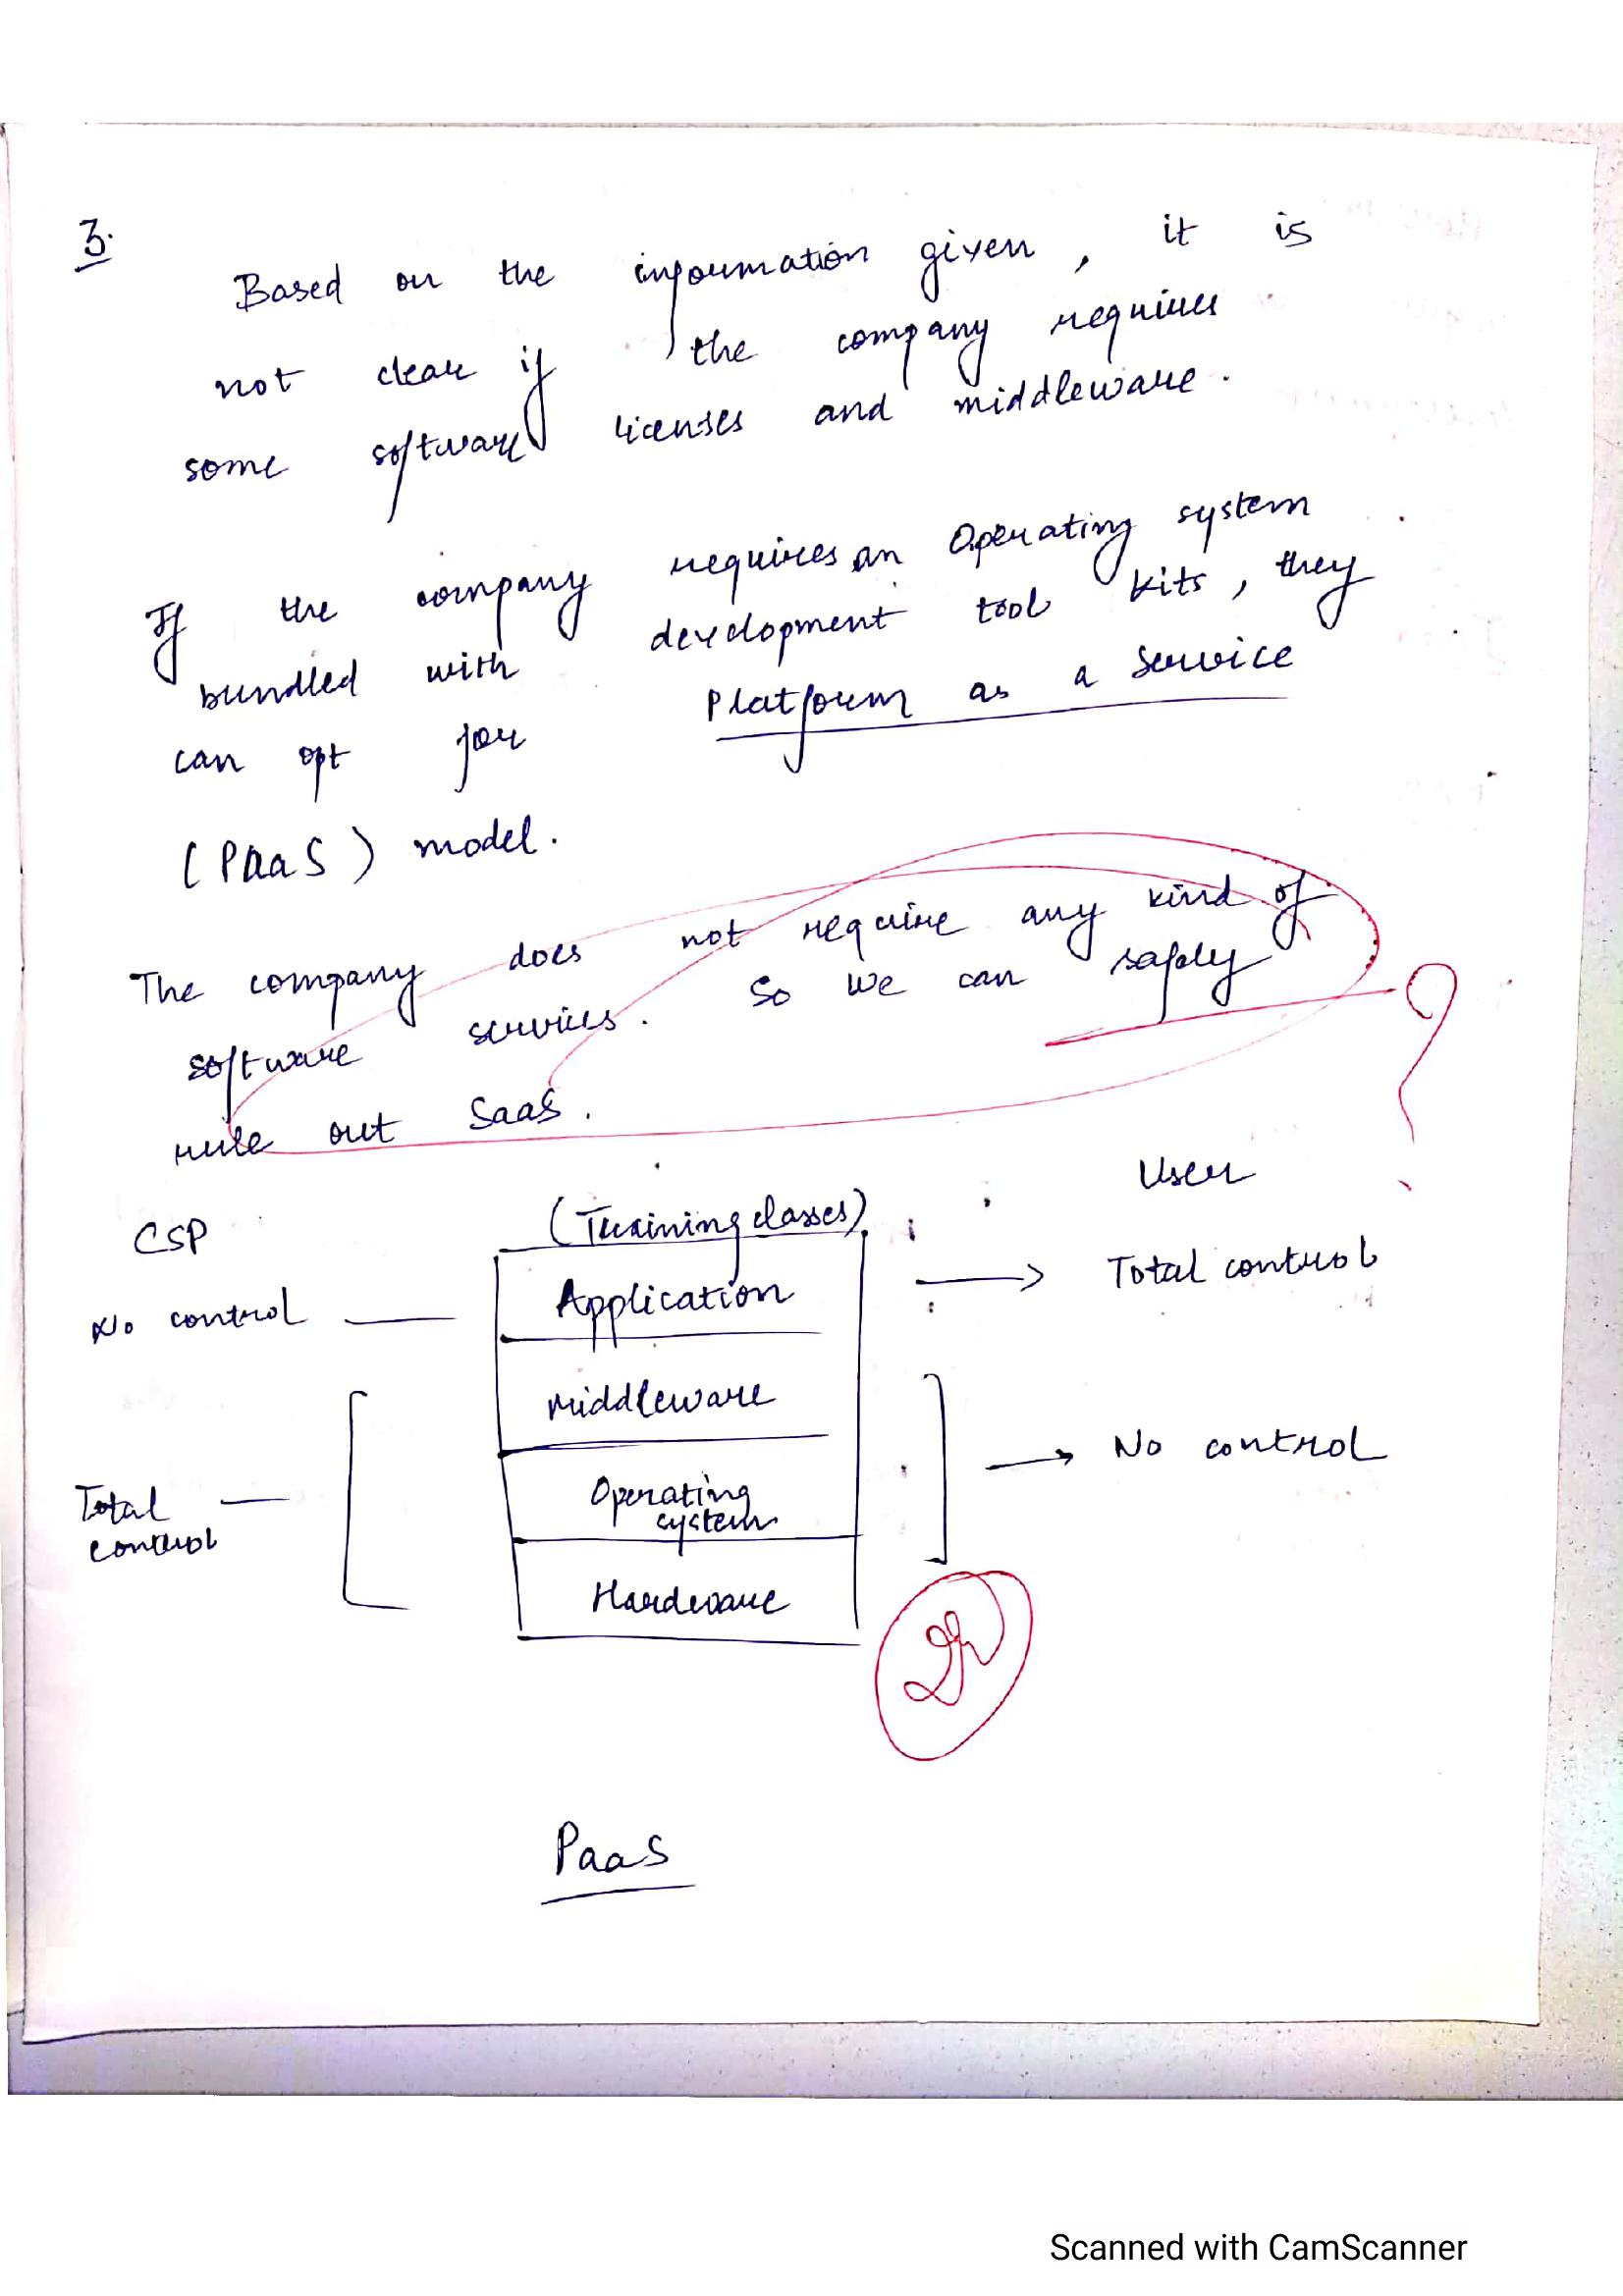 3.
Based on the information given, it is
not clear if the company requires
some software licenses and middleware.
If the company requires an Operating system
bundled with development tool kits, they
can opt for Platform as a Service
(PaaS) model.
The company does not require any kind of
software services. So we can safely
rule out SaaS.
?
CSP (Training classes) User
No control Application Total control
Middleware
Total control Operating system No control
Hardware
PaaS
Scanned with CamScanner